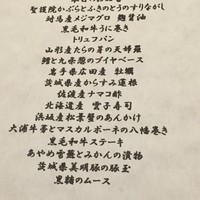 聖護院かぶらとふきのとうのすりながし
対馬産メジマグロ 麹醤油
黒毛和牛うに巻き
トリュフパン
山形産たらの芽の天婦羅
鱈と九条葱のブイヤベース
岩手県広田産 牡蠣
茨城県産からすみ蓮根
佐渡産ナマコ酢
北海道産 雲子寿司
浜坂産松葉蟹のあんかけ
大浦牛蒡とマスカルポーネの八幡巻き
黒毛和牛ステーキ
あやめ雪蕪とみかんの漬物
茨城県美明豚の豚玉
黒糖のムース